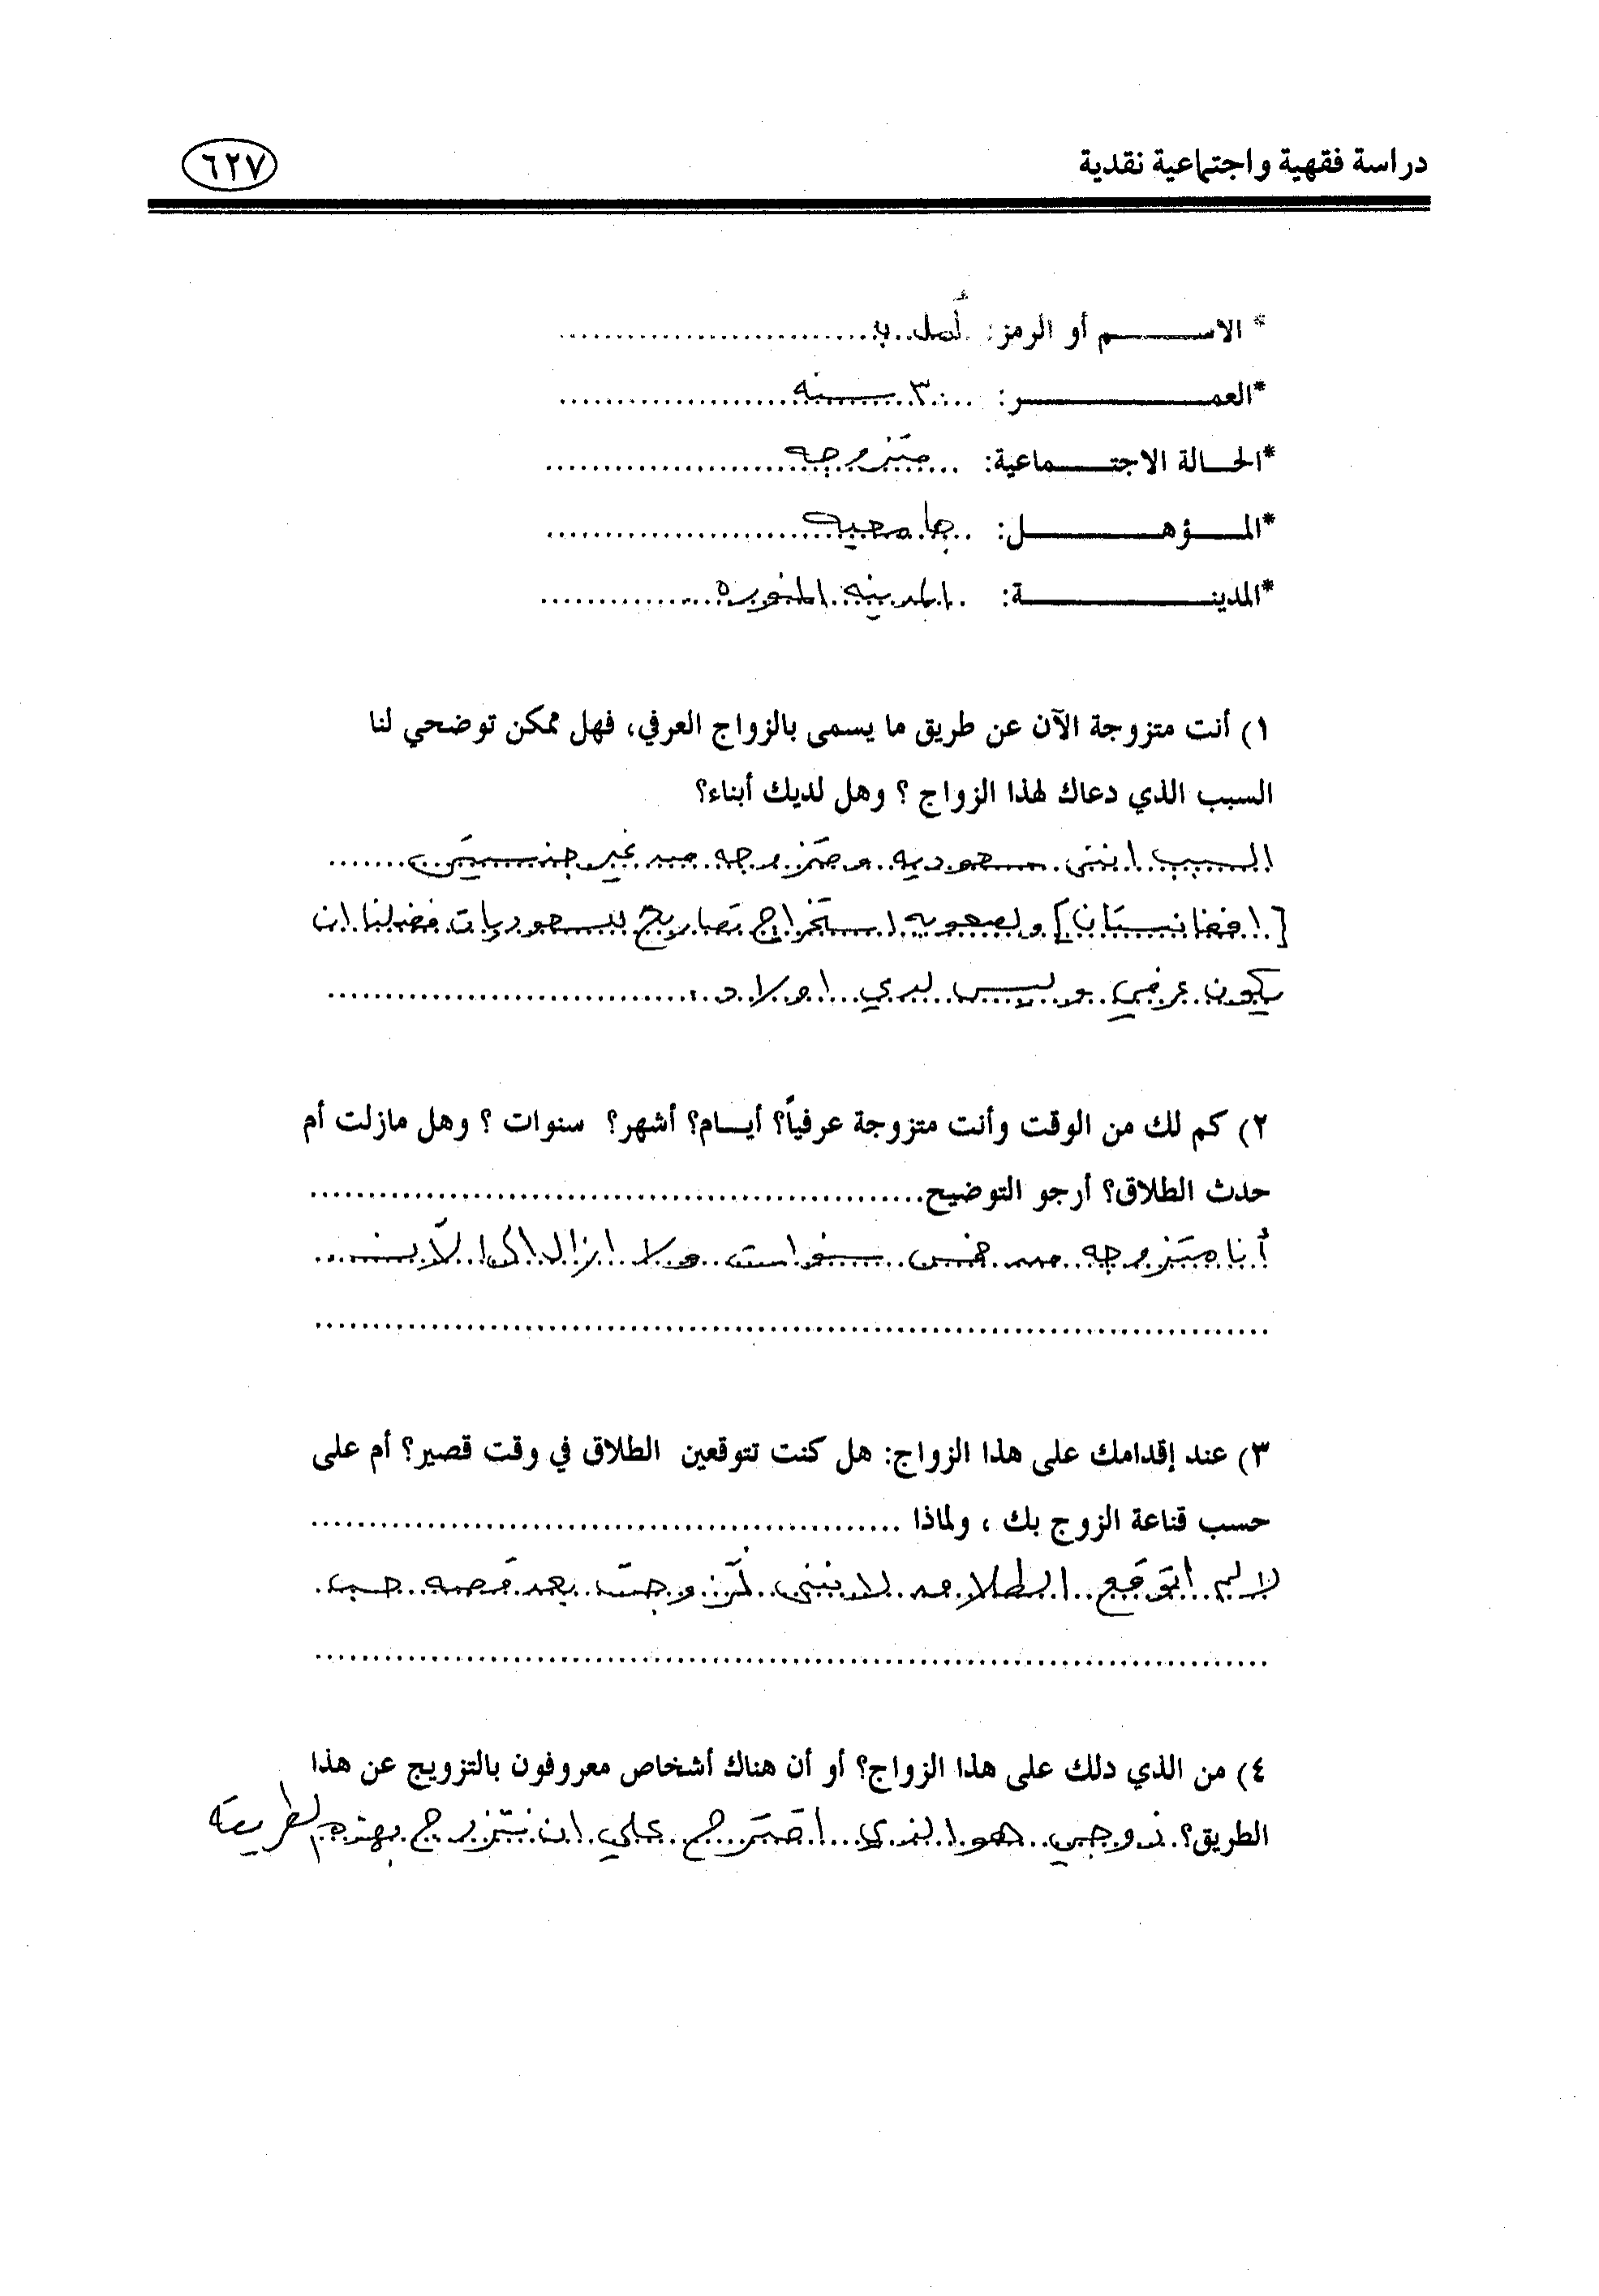 دراسة فقهية واجتماعية نقدية
٦٢٧
* الاســـــم أو الرمز: أمل
*العمـــــــــر: ٣٠ سنه
*الحـالة الاجتــماعية: متزوجه
*المـــؤهـــــــل: جامعيه
*المدينـــــــــة: المدينه المنوره
١) أنت متزوجة الآن عن طريق ما يسمى بالزواج العرفي، فهل ممكن توضحي لنا
السبب الذي دعاك لهذا الزواج ؟ وهل لديك أبناء؟
السبب انني سعوديه ومتزوجه من غير جنسيتي
[افغانستان] ولصعوبه استخراج تصاريح للسعوديات فضلنا ان
يكون عرفي وليس لدي اولاد.
٢) كم لك من الوقت وأنت متزوجة عرفياً؟ أيـــام؟ أشهر؟ سنوات ؟ وهل مازلت أم
حدث الطلاق؟ أرجو التوضيح
أنا متزوجه من خمس سنوات ولا ازال الى الآن
٣) عند إقدامك على هذا الزواج: هل كنت تتوقعين الطلاق في وقت قصير؟ أم على
حسب قناعة الزوج بك ، ولماذا
لا لم اتوقع الطلاق لانني تزوجت بعد قصه حب
٤) من الذي دلك على هذا الزواج؟ أو أن هناك أشخاص معروفون بالتزويج عن هذا
الطريق؟ زوجي هو الذي اقترح علي ان نتزوج بهذه الطريقه